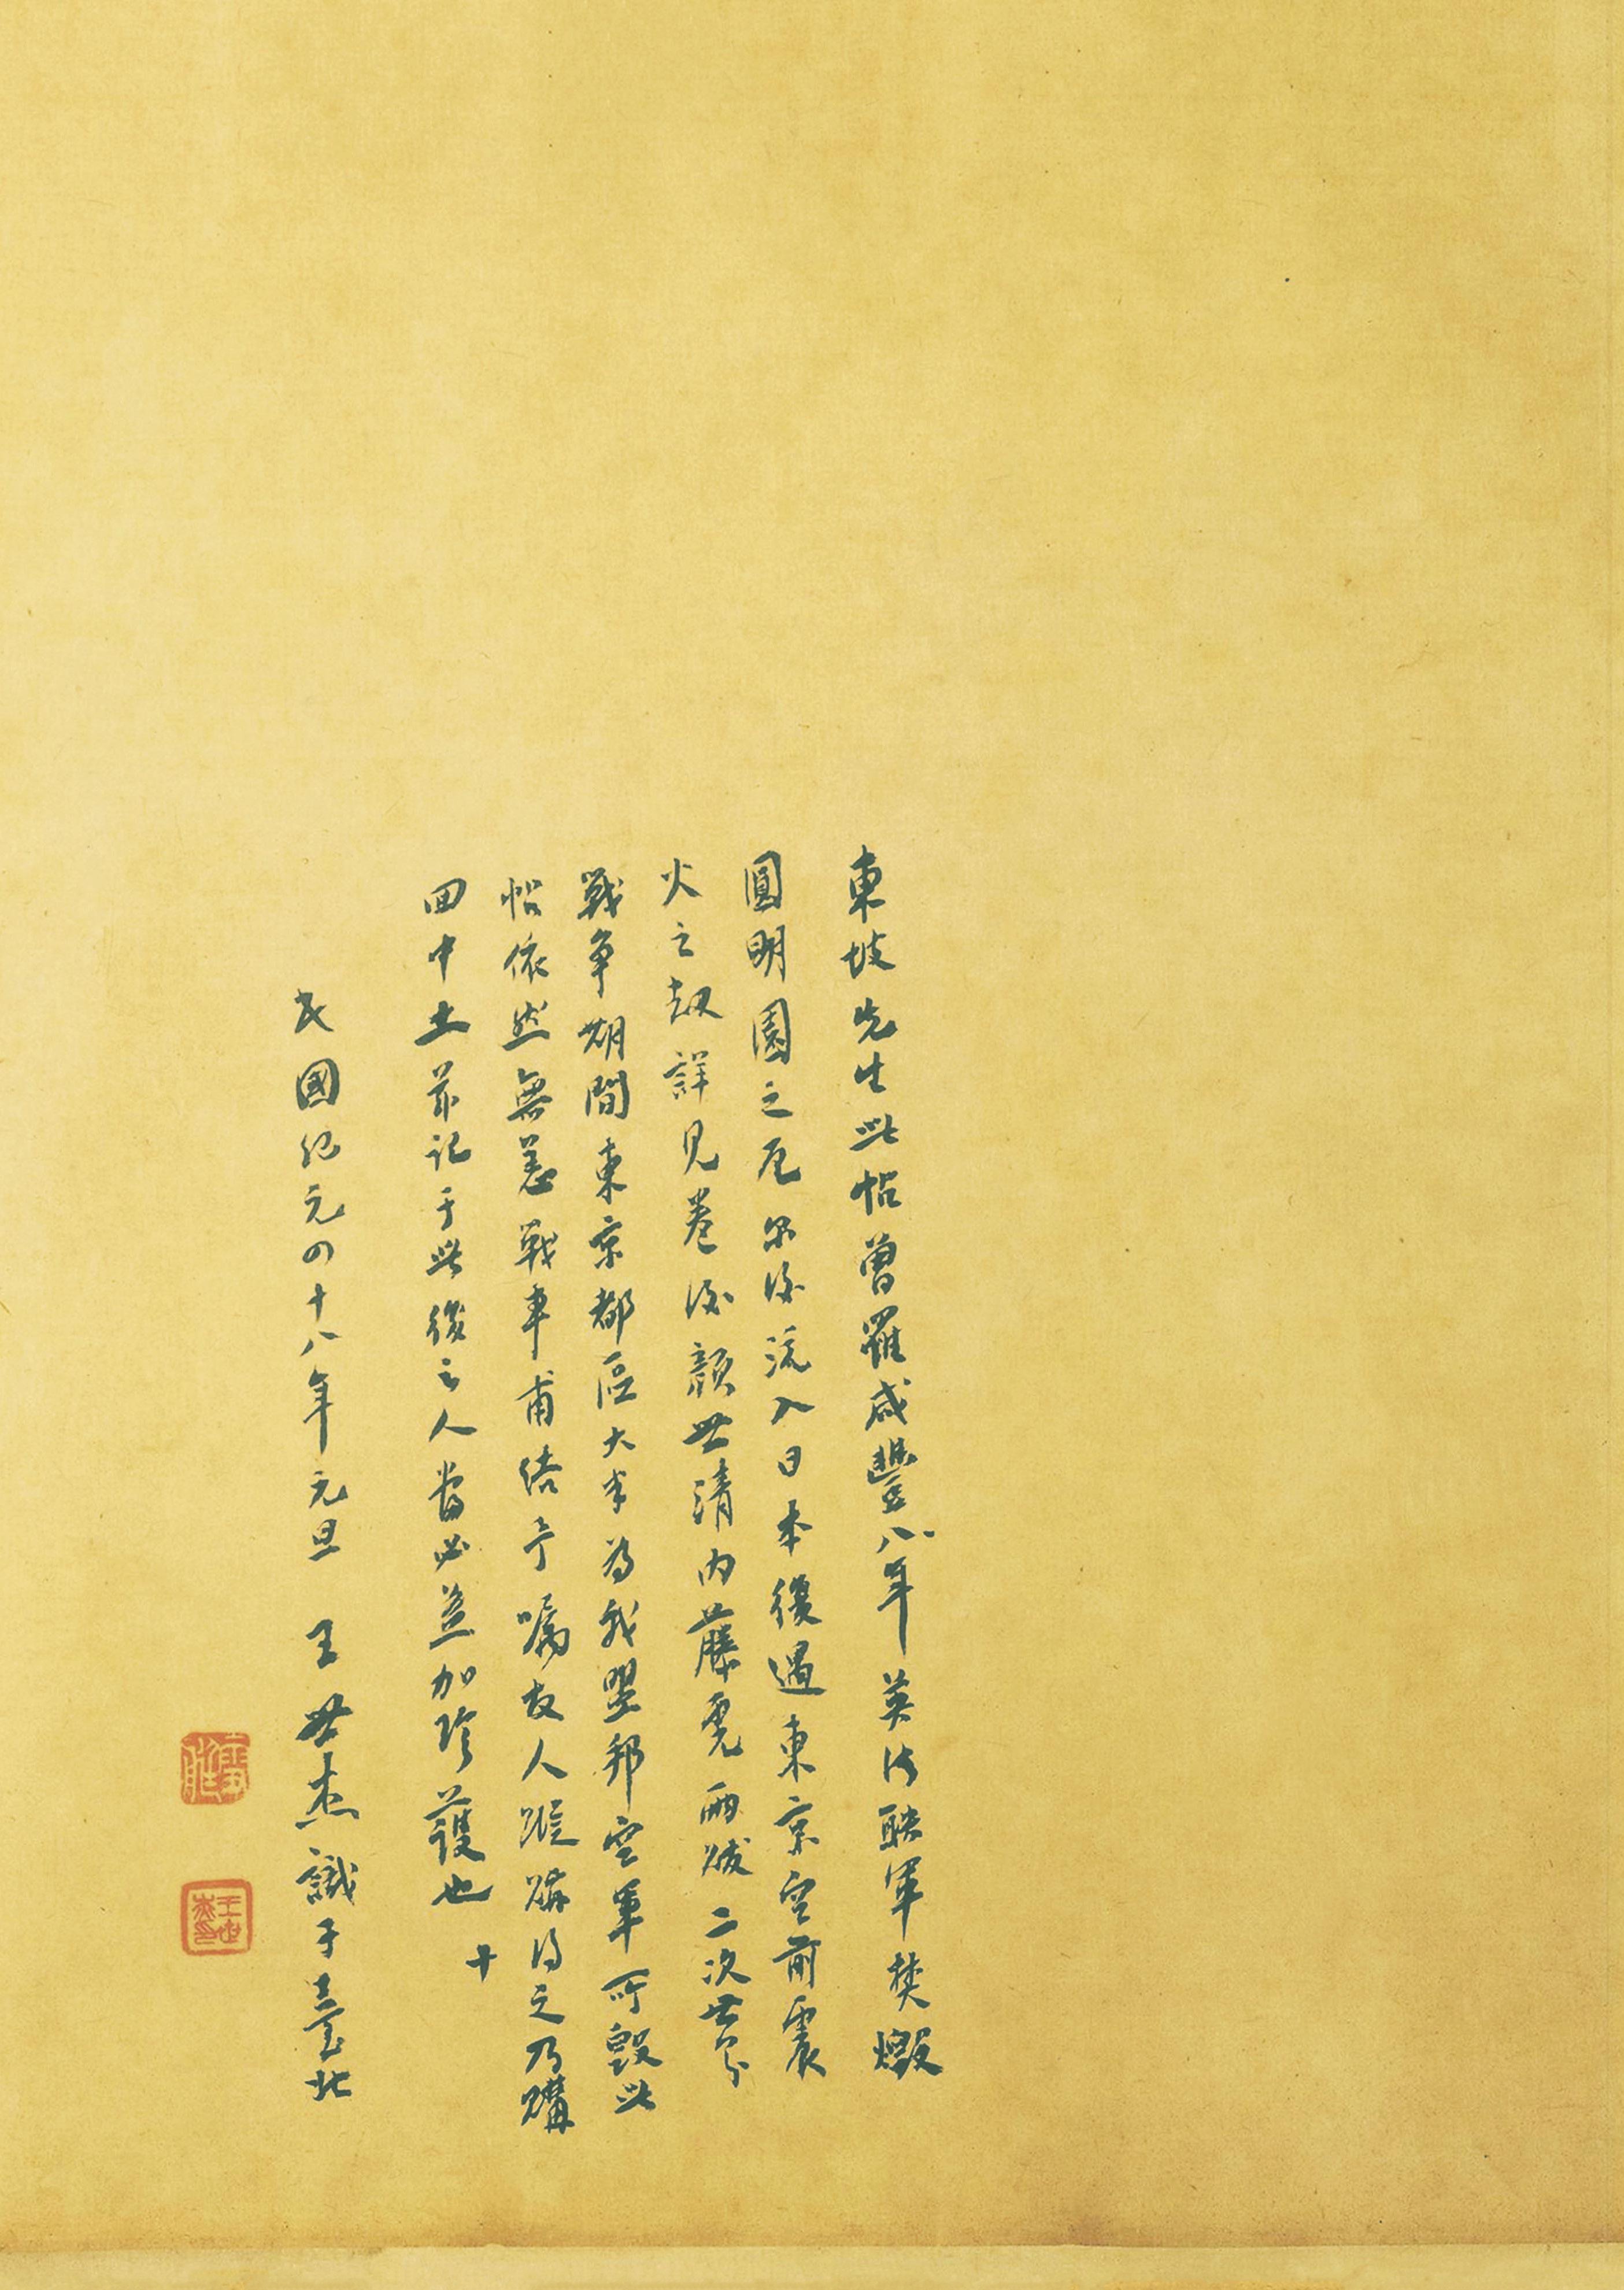 東坡先生此帖曾罹咸豐八年英法聯軍焚燬
圓明園之厄尔後流入日本復遇東京空前震
火之劫詳見卷後顏世清内藤虎兩跋二次世界
戰爭期間東京都區大半為我盟邦空軍所毀此
帖依然無恙戰事甫結予囑友人蹤蹟得之乃購
回中土並記于此後之人當必益加珍護也
民國紀元四十八年元旦 王世杰識于臺北
雪艇
王世杰印